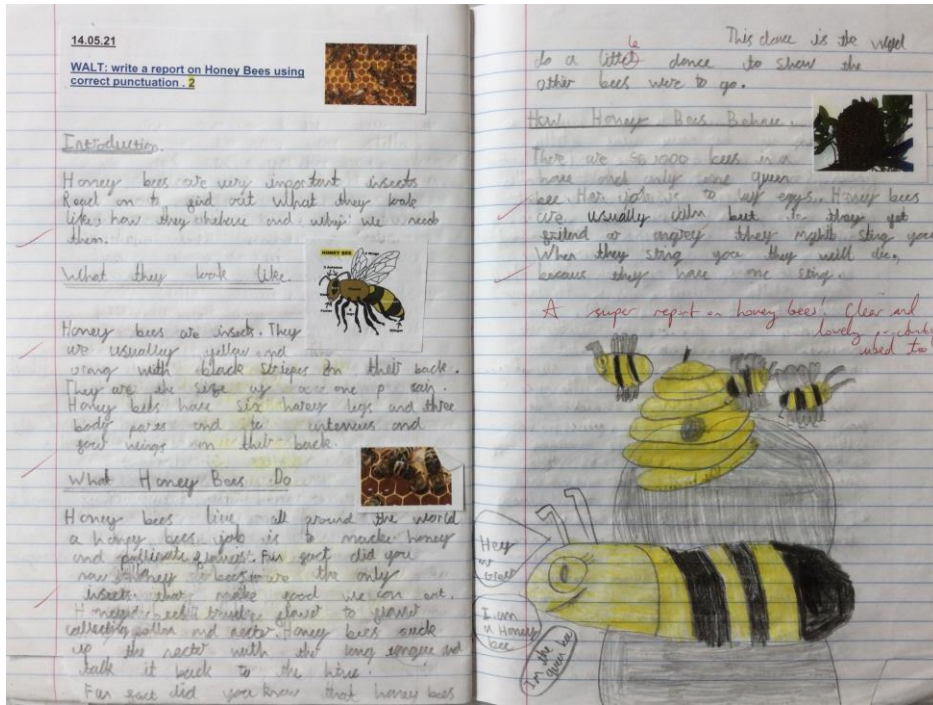 14.05.21
WALT: write a report on Honey Bees using
correct punctuation . 2
Introduction.
Honey bees are very important insects
Read on to find out What they look
like, how they behave and why we need
them.
What they look like.
HONEY BEE
Honey bees are insects. They
are usualley yellow and
orang with black stripes on their back.
They are the size of one
Honey bees have six harey legs and three
body parts and antennas and
four wings on their back.
What Honey Bees Do
Honey bees live all around the world
a honey bees job is to macke honey
and pollinate flowers. Fun fact did you
now honey bees are the only
insects that make food we can eat.
bees travel flower to flower
collecting pollan and necter. Honey bees suck
up the necter with the long tongue and
talk it back to the hive.
Fun fact did you know that honey bees
This dance is the
do a little dance to show the
other bees were to go.
How Honey Bees Behave.
There are 50,000 bees in a
and only one queen
bee. Her job is to lay eggs. Honey bees
are usually calm but if they get
or angrey they might sting you
When they sting you they will die,
becaus they have one sting.
A super report on honey bees! Clear and
lovely
used too
Hey
I am
a Honey
bee
I'm the
queen bee